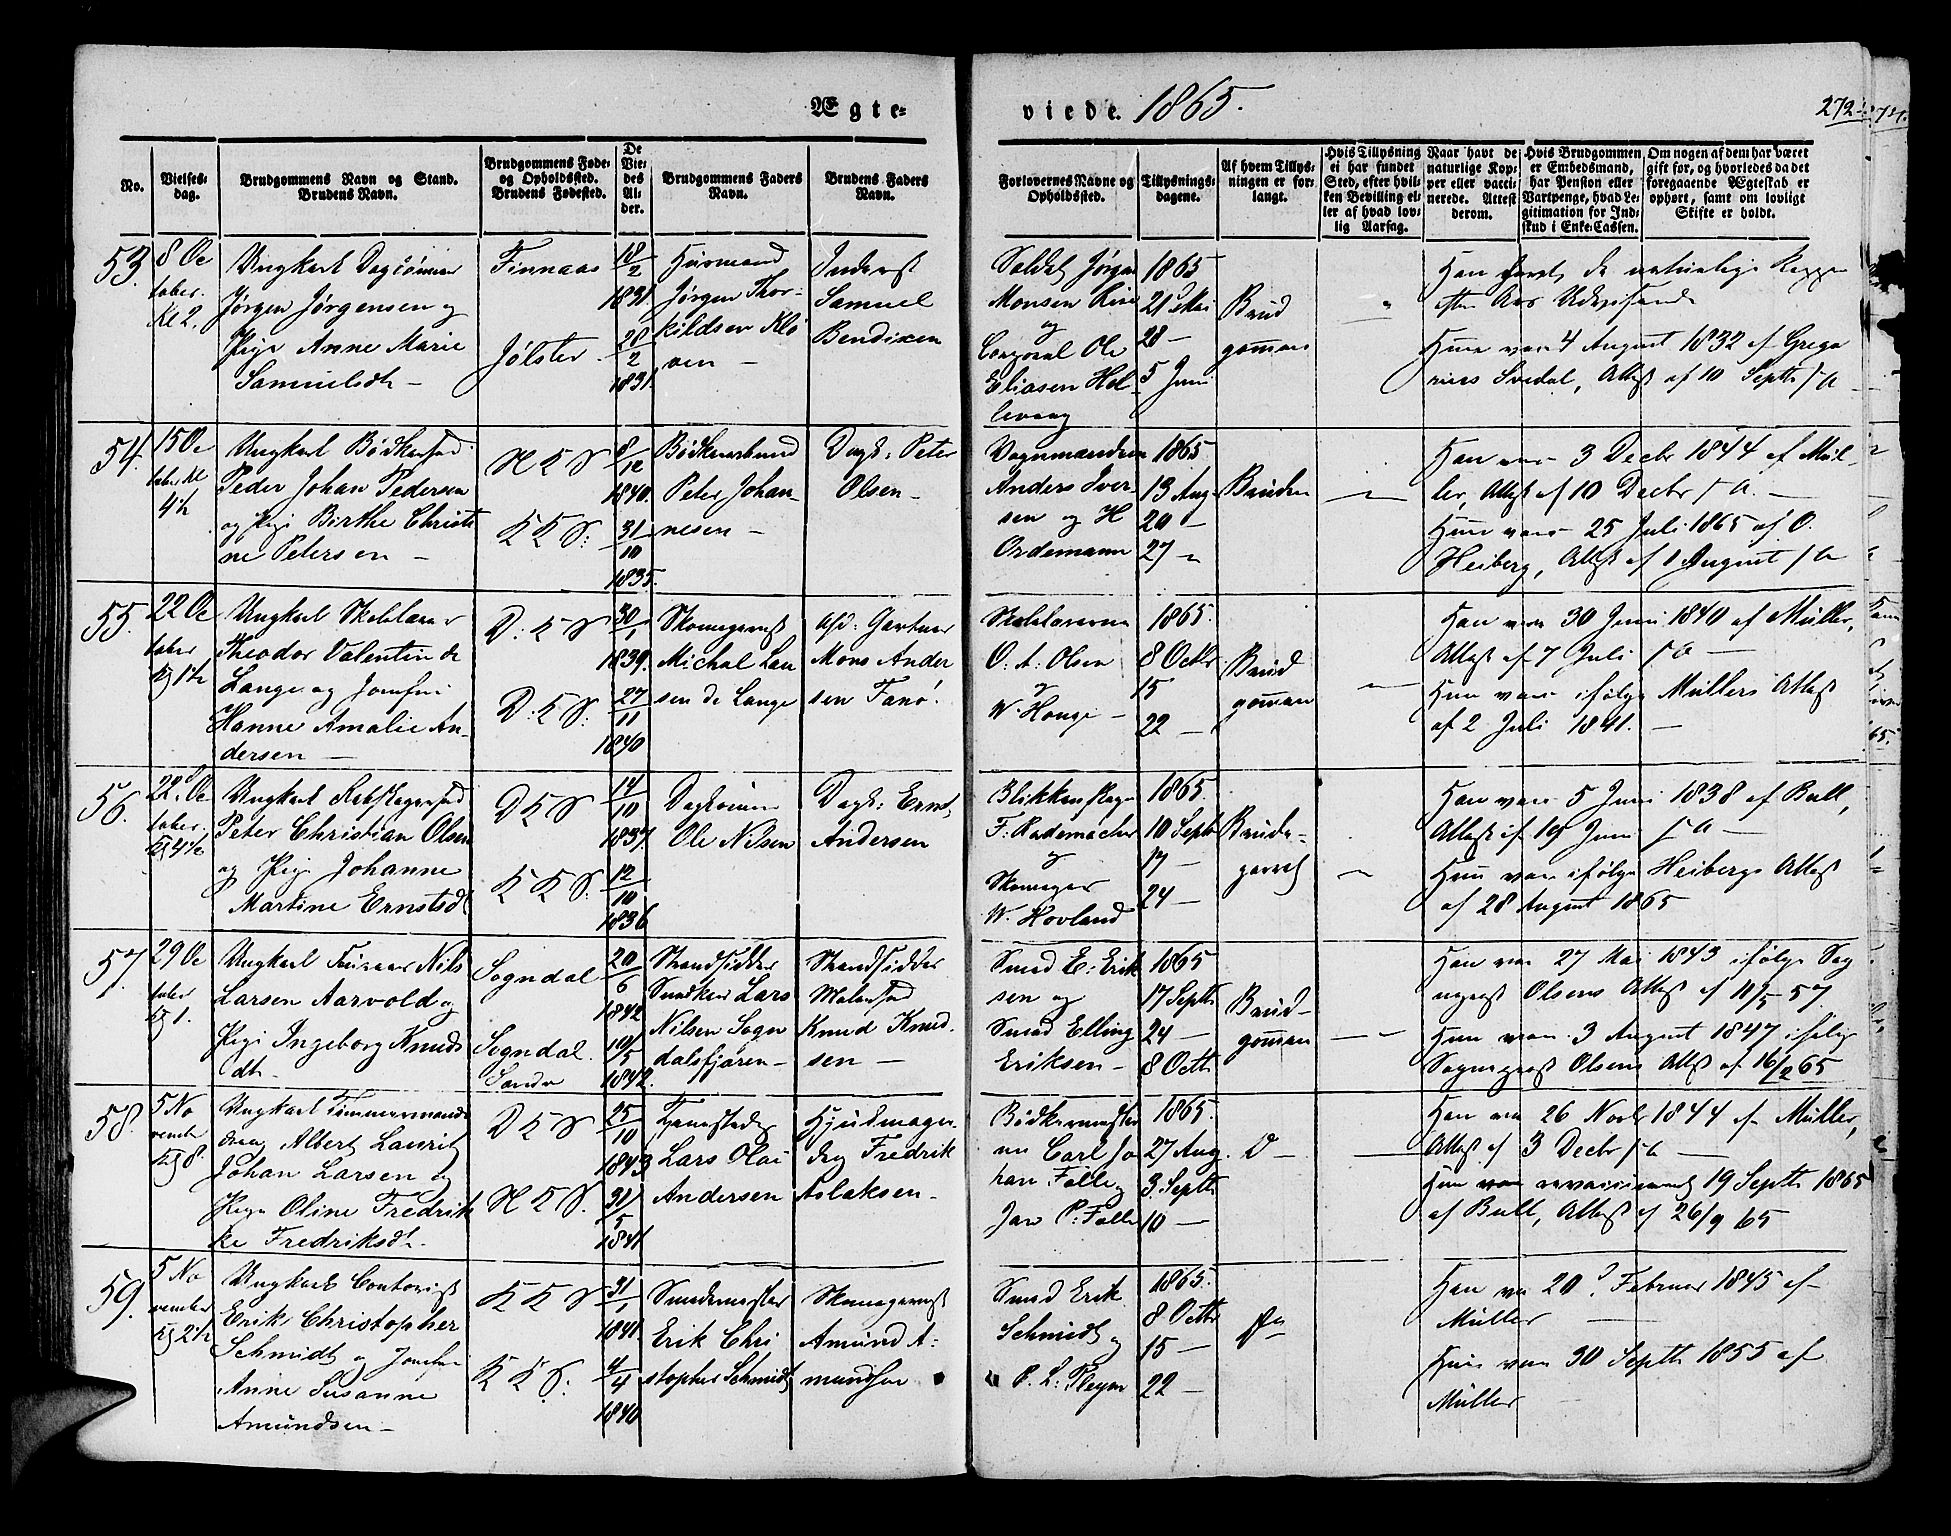 Ægte-
viede. 1865.
272
No.
Vielses-
dag.
Brudgommens Navn og Stand.
Brudens Navn.
Brudgommens Føde-
og Opholdssted.
Brudens Fødested.
De
Vie-
des
Al-
der.
Brudgommens Faders
Navn.
Brudens Faders
Navn.
Forlovernes Navne og
Opholdssted.
Tillysnings-
dagene.
Af hvem Tillys-
ningen er for-
langt.
Hvis Tillysning
ei har fundet
Sted, efter hvil-
ken Bevilling el-
ler af hvad lov-
lig Aarsag.
Naar havt de
naturlige Kop-
per eller vacci-
nerede. Attest
derom.
Hvis Brudgommen
er Embedsmand,
har Pension eller
Vartpenge, hvad Le-
gitimation for Ind-
skud i Enke-Cassen.
Om nogen af dem har været
gift før, og hvorledes da det
foregaaende Ægteskab er
ophørt, samt om lovligt
Skifte er holdt.
53.
8 Oc
tober.
Kl 2.
Ungkarl
Jørgen Jørgensen og
Pige Anne Marie
Samuelsdtr –
Finnaas
Jølster
18/2
1831.
28/2
1831.
Huusmand
Jørgen Thor-
kildsen Klø
ven –
Inderst
Samuel
Bendixen
Soldat Jørgen
Monsen
og
Corporal Ole
Eliasen Hol
levaag
1865
21 Mai
28 –
5 Juni
Brud
gomen
Han havt de naturlige Kopper
Hun vacc 4 August 1832 af Grego
rius Svedal, Attest af 10 Septb s a –
54.
15 Oc
tober Kl
4½
Ungkarl Bødkersvd
Peder Johan Pedersen
og Pige Birthe Christi
ne Petersen –
N K S
K K S:
8/12
1840.
31/10
1835.
Bødkersvend
Peter Johan-
nesen –
Dagk: Peter
Olsen –
Vognmændene
Anders Iver-
sen og H
Ordemann
1865.
13 Aug
20 –
27 –
Bruden
Han vacc 3 Decbr 1844 af Mül-
ler, Attest af 10 Decbr s a. –
Hun vacc 25 Juli 1865 af O.
Heiberg, Attest af 1 August s a
55.
22 Oc
tober
Kl 1½
Ungkarl Skolelærer
Theodor Valentin de
Lange og Jomfru
Hanne Amalie An-
dersen –
D: K S
D: K S:
30/1
1839.
27/11
1840
Skomagermst
Michal Lau
sen de Lange
afd: Gartner
Mons Ander
sen Fanø.
Skolelærerne
O. A: Olsen
og
W. Hauge –
1865.
8 Octbr
15
22 –
Brud
goman
Han vacc 30 Juni 1840 af Müller,
Attest af 7 Juli s a –
Hun vacc ifølge Müllers Attest
af 2 Juli 1841. –
56.
22 Oc
tober
Kl 4½
Ungkarl Rebslagersvd
Peter Christian Olsen
og Pige Johanne
Martine Ernstsdt
D K S
K K S:
14/10
1837.
12/10
1836
Ole Nilsen
Dagk: Ernst
Andersen
Blikkenslager
F. Rademacher
og
Skomager
W. Hovland
1865.
10 Septb
17 –
24 –
Han vacc 5 Juni 1838 af Bull,
Attest af 19 Juni s a –
Hun vacc ifølge Heibergs Attest
af 28 August 1865
57.
29 Oc
tober
Kl 1.
Ungkarl Nils
Larsen Aarvold og
Pige Ingeborg Knuds
dtr –
Sogndal
Sogndal
20/6
1842
10/5
1842.
Strandsidder
Snedker Lars
Nilsen Sogn
dalsfjøren –
Strandsidder
Malersvd
Knud Knud-
sen –
Smed E: Erik
sen og
Smed Elling
Eriksen –
1865
17 Septb
24 –
8 Octb
Brud-
goman
Han vacc 27 Mai 1843 ifølge Sog
neprest Olsens Attest af 11/5 57.
Hun vacc 3 August 1847 ifølge
Sogneprest Olsens Attest af 16/2 65
58.
5 No
vember
Kl 8.
Ungkarl Timmermands
dreng Albert Laurits
Johan Larsen og
Pige Oline Fredrik
ke Fredriksdtr –
D K S
N K S.
25/10
1843
31/5
1841
Lars Olai
Andersen
Hjulmager
Fredrik
Aslaksen –
Bødkermestr
ne Carl Jo
han Falle og
Jan P: Falle
1865.
27 Aug.
3. Septb
10 –
D –
Han vacc 26 Novbr 1844 af Müller,
Attest af 3 Decbr s a –
Hun revaccineret 19 Septb 1865
af Bull, Attest af 26/9 65
59.
5 No
vember
Kl 2½
Ungkarl Contorist
Erik Christopher
Schmidt og Jomfru
Anne Susanne
Amundsen –
K K S
K K S:
31/1
1841.
4/4
1840
Smedemester
Erik Chri
stopher Schmidt
Skomagermst
Amund A-
mundsen
Smed Erik
Schmidt og
P. L: Pleym
1865.
8 Octb
15 –
22 –
Han vacc 20 Februar 1845 af
Müller –
Hun vacc 30 Septb 1855 af
Müller